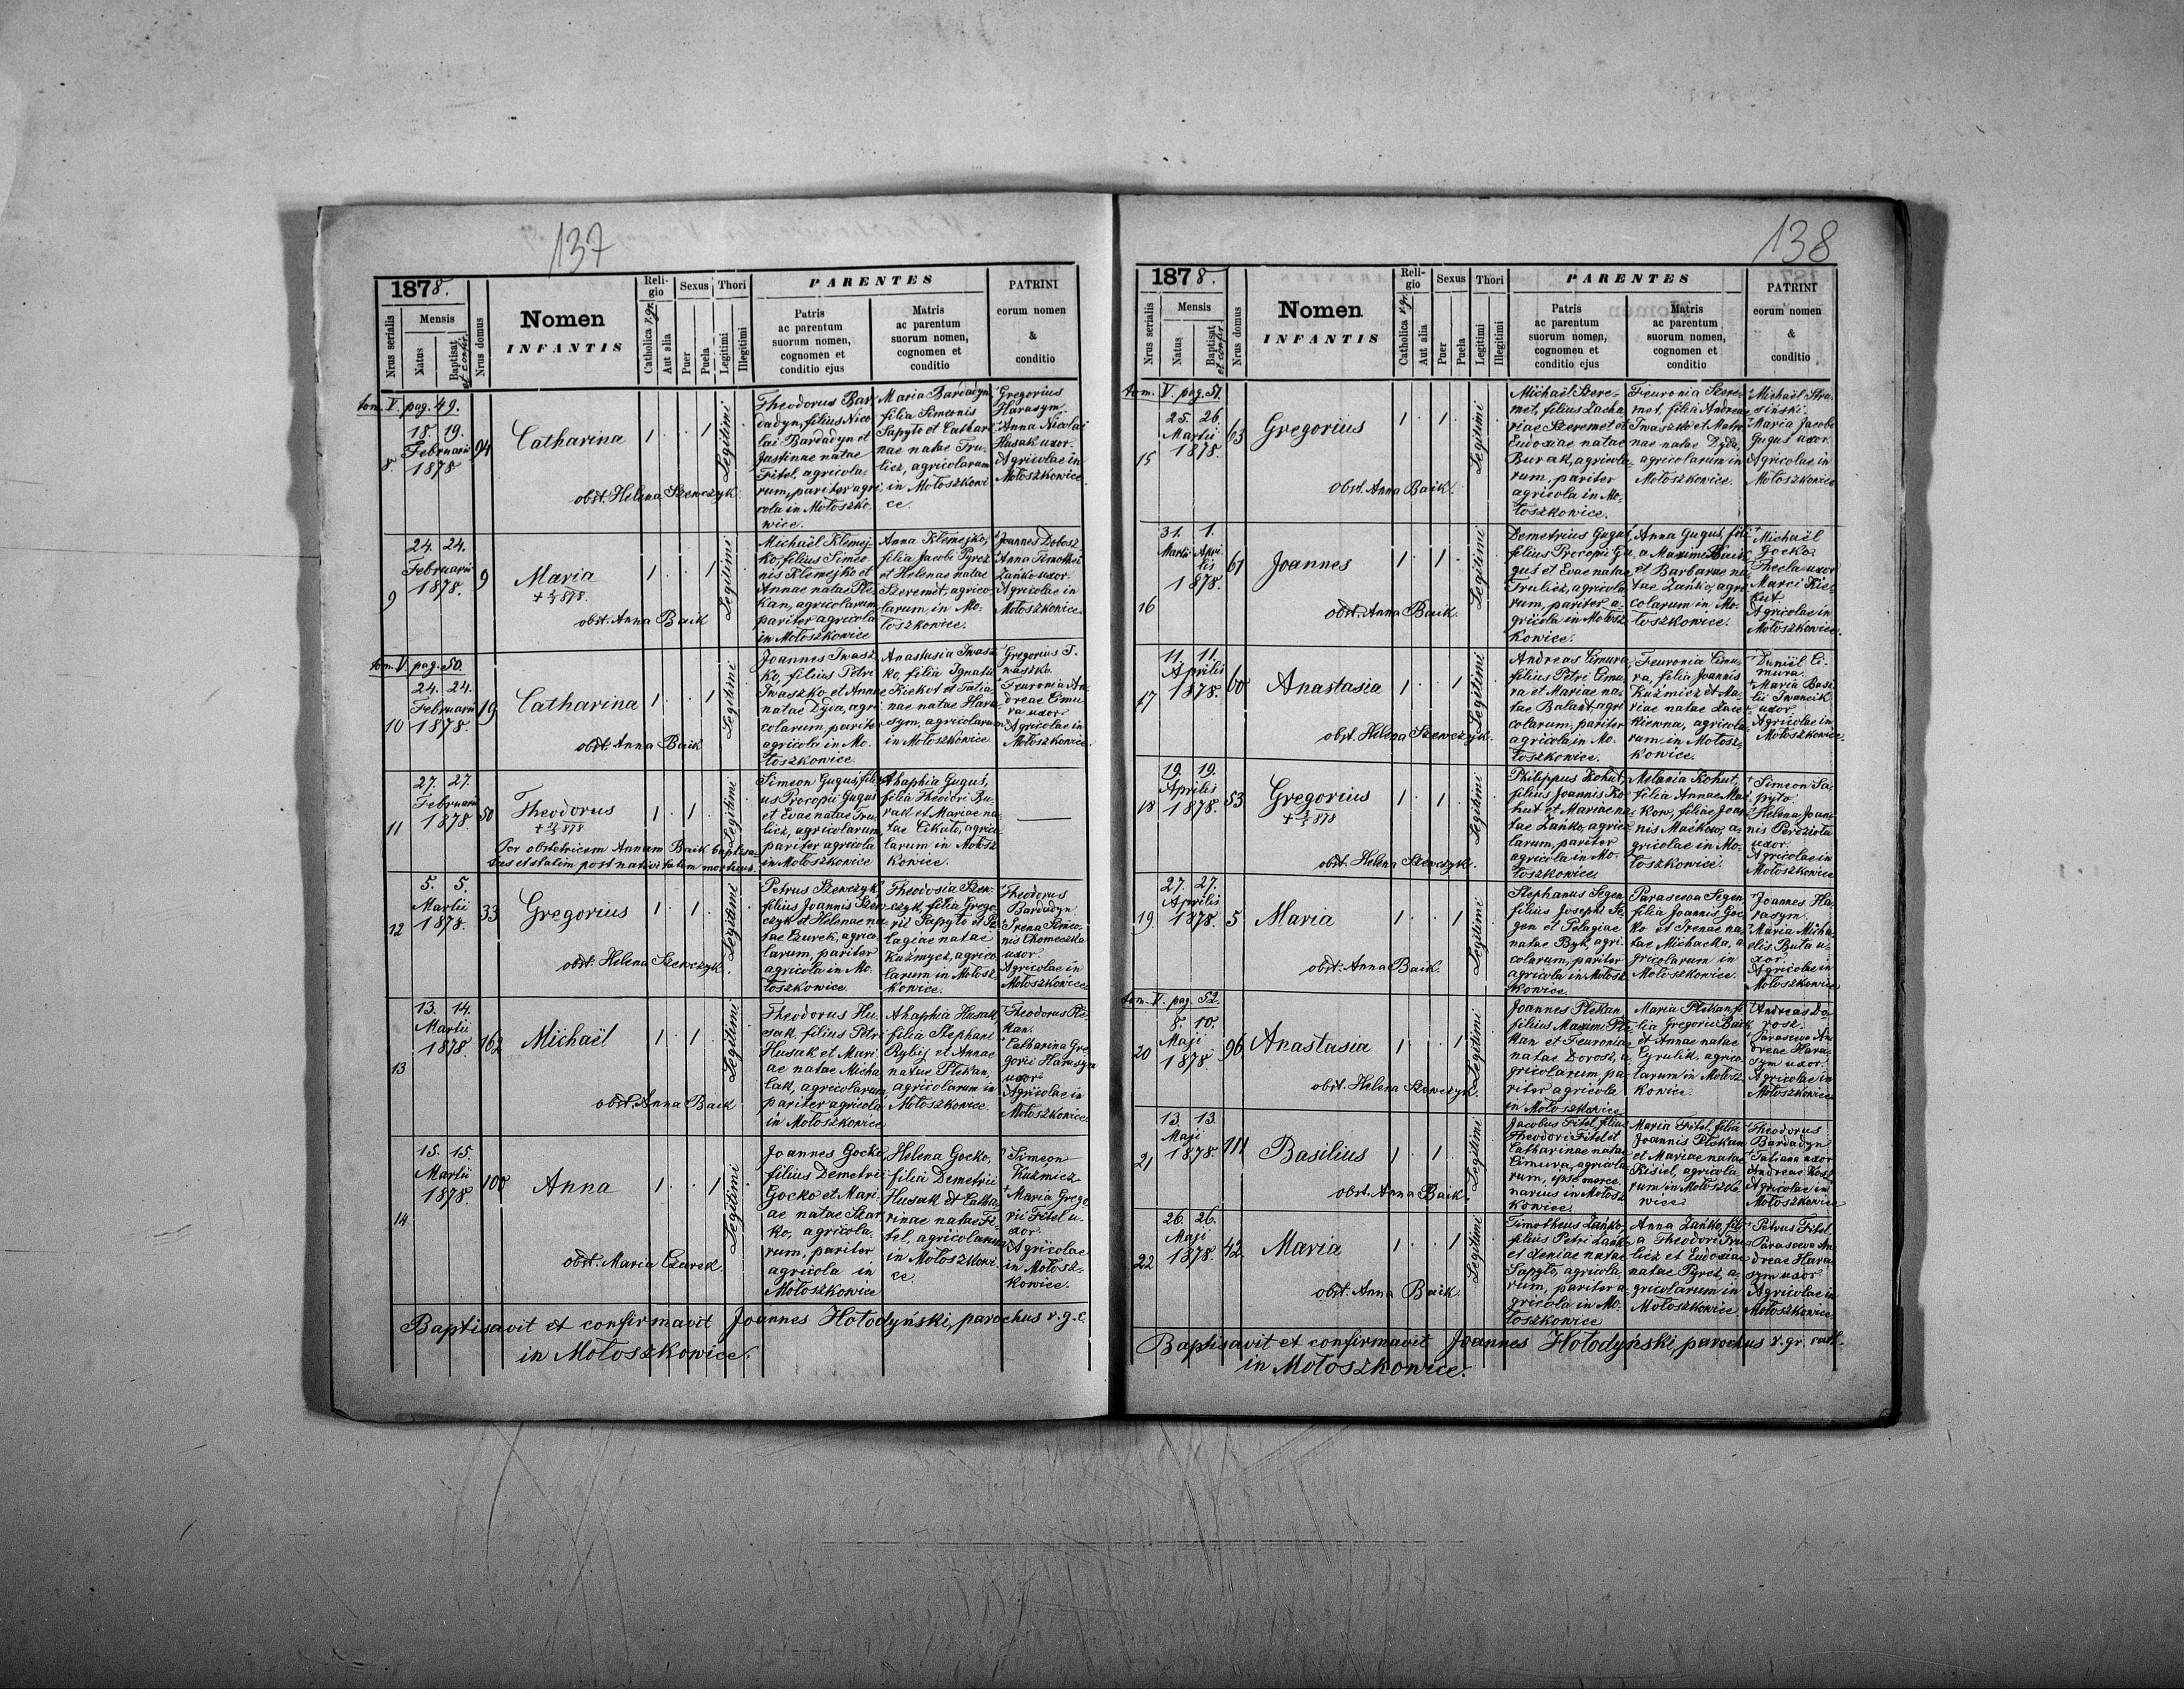 137
1878.
Nrus serialis
Mensis
Natus
Baptisat et confir.
Nrus domus
Nomen
INFANTIS
Religio
Catholica r.gr.
Aut alia
Sexus
Puer
Puela
Thori
Legitimi
Illegitimi
PARENTES
Patris
ac parentum
suorum nomen,
cognomen et
conditio ejus
Matris
ac parentum
suorum nomen,
cognomen et
conditio
PATRINI
eorum nomen
&
conditio
tom. V. pag. 49.
8
18. 19.
Februarii
1878
94
Catharina
1 . . 1
Legitimi
obst. Helena Szewczyk.
Theodorus Bar-
dadyn, filius Nico
lai Bardadyn et
Justinae natae
Fitel, agricola-
rum, pariter agri
cola in Mołoszko-
wice.
Maria Bardadyn
filia Simeonis
Sapyto et Cathari
nae natae Tru-
licz, agricolarum
in Mołoszkowi
ce.
Gregorius
Harasym.
Anna Nicolai
Husak uxor.
Agricolae in
Mołoszkowice
9
24. 24.
Februarii
1878.
9
Maria
1 . . 1
Legitimi
obst. Anna Baik
Michaël Klemej-
ko, filius Simeo
nis Klemejko et
Annae natae Ple
kan, agricolarum
pariter agricola
in Mołoszkowice
Anna Klemejko,
filia Jacobi Pyrcz
et Helenae natae
Szeremet, agrico
larum, in Mo-
łoszkowice.
Joannes Dobosz
Anna Timothei
Zańko uxor.
Agricolae in
Mołoszkowice.
tom. V. pag. 50.
10
24. 24.
Februarii
1878.
19
Catharina
1 . . 1
Legitimi
obst. Anna Baik
Joannes Iwasz
ko, filius Petri
Iwaszko et Annae
natae Dyia, agri
colarum, pariter
agricola in Mo-
łoszkowice.
Anastasia Iwasz
ko, filia Ignatii
Kiekot et Tatia-
nae natae Hara
sym, agricolarum
in Mołoszkowice
Gregorius I-
waszko.
Feuronia An-
dreae Cimu
ra uxor
Agricolae in
Mołoszkowice.
11
27. 27.
Februarii
1878.
50
Theodorus
1 . 1 .
Legitimi
Per obstetricem Annam Baik baptisa-
tus et statim post nativitatem mortuus.
Simeon Guguś, fili
us Procopii Gugus
et Evae natae Tru
licz, agricolarum
pariter agricola
in Mołoszkowice
Ahaphia Guguś,
filia Theodori Bu-
rak et Mariae na
tae Cikało, agrico
larum in Mołosz
kowice.
12
5. 5.
Martii
1878.
33
Gregorius
1 . 1 .
Legitimi
obst. Helena Szewczyk.
Petrus Szewczyk
filius Joannis Szew
czyk et Helenae na
tae Czurek, agrico
larum, pariter
agricola in Mo-
łoszkowice.
Theodosia Szew-
czyk, filia Grego-
rii Sapyto et Pe
lagiae natae
Kuźmycz, agrico
larum in Mołosz
kowice.
Theodorus
Bardadyn
Irena Simeo-
nis Chomeczka
uxor.
Agricolae in
Mołoszkowice
13
13. 14.
Martii
1878.
162
Michaël
1 . 1 .
Legitimi
obst. Anna Baik
Theodorus Hu-
sak, filius Petri
Husak et Mari-
ae natae Micha
lak, agricolarum,
pariter agricola
in Mołoszkowice
Ahaphia Husak,
filia Stephani
Rybij et Annae
natae Plekan,
agricolarum in
Mołoszkowice.
Theodorus Ple
kan.
Catharina Gre
gorii Harasym
uxor
Agricolae in
Mołoszkowice
14
15. 15.
Martii
1878.
100
Anna
1 . . 1
Legitimi
obst. Maria Czurek.
Joannes Gocko,
filius Demetrii
Gocko et Mari-
ae natae Szar
ko, agricola-
rum, pariter
agricola in
Mołoszkowice
Helena Gocko,
filia Demetrii
Husak et Catha-
rinae natae Fi-
tel, agricolarum
in Mołoszkowi-
ce.
Simeon
Kuźmicz
Maria Grego
rii Fitel u-
xor.
Agricolae
in Mołosz-
kowice.
Baptisavit et confirmavit Joannes Hołodyński, parochus r. g. c.
in Mołoszkowice.
138
1878.
Nrus serialis
Mensis
Natus
Baptisat et confir
Nrus domus
Nomen
INFANTIS
Religio
Catholica r.gr.
Aut alia
Sexus
Puer
Puela
Thori
Legitimi
Illegitimi
PARENTES
Patris
ac parentum
suorum nomen,
cognomen et
conditio ejus
Matris
ac parentum
suorum nomen,
cognomen et
conditio
PATRINI
eorum nomen
&
conditio
tom. V. pag. 51.
15
25. 26.
Martii
1878.
63
Gregorius
1 . 1 .
Legitimi
obst. Anna Baik.
Michaël Szere-
met, filius Zacha
riae Szeremet et
Eudoxiae natae
Burak, agricola-
rum, pariter
agricola in Mo-
łoszkowice.
Feuronia Szere-
met, filia Andreae
Iwaszko et Matro
nae natae Dyda,
agricolarum in
Mołoszkowice.
Michaël Stra-
siński.
Maria Jacobi
Guguś uxor.
Agricolae in
Mołoszkowice
16
31. 1.
Martii Aprilis
1878.
61
Joannes
1 . 1 .
Legitimi
obst. Anna Baik.
Demetrius Guguś,
filius Procopii Gu
gus et Evae natae
Trulicz, agricola
rum, pariter a-
gricola in Mołosz
kowice.
Anna Guguś, fili
a Maximi Baik
et Barbarae na
tae Zańko, agri
colarum in Mo-
łoszkowice.
Michaël
Gocko
Thecla uxor
Marci Kie-
kut
Agricolae in
Mołoszkowice.
17
11. 11.
Aprilis
1878.
60
Anastasia
1 . . 1
Legitimi
obst. Helena Szewczyk.
Andreas Cimura,
filius Petri Cimu
ra et Mariae na-
tae Balant, agri
colarum, pariter
agricola in Mo-
łoszkowice.
Feuronia Cimu-
ra, filia Joannis
Kuźmicz et Ma-
riae natae Zace
kiewna, agricola
rum in Mołosz
kowice.
Daniël Ci-
mura.
Maria Basi
lii Iwancik
uxor
Agricolae in
Mołoszkowice.
18
19. 19.
Aprilis
1878.
53
Gregorius
1 . 1 .
Legitimi
obst. Helena Szewczyk.
Philippus Kohut,
filius Joannis Ko
hut et Mariae na
tae Zańko, agrico
larum, pariter
agricola in Mo-
łoszkowice.
Melania Kohut,
filia Annae Mać
kow, filiae Joan
nis Maćkow, a-
gricolae in Mo-
łoszkowice.
Simeon Sa-
pyto.
Helena Joan-
nis Peroziola
uxor.
Agricolae in
Mołoszkowice
19.
27. 27.
Aprilis
1878.
5
Maria
1 . . 1
Legitimi
obst. Anna Baik.
Stephanus Segen,
filius Josephi Se-
gen et Pelagiae
natae Byk, agri-
colarum, pariter
agricola in Mołosz
kowice.
Parascewa Segen,
filia Joannis Goc
ko et Irenae na-
tae Michacka, a
gricolarum in
Mołoszkowice.
Joannes Ha-
rasym.
Maria Micha
elis Buta u-
xor.
Agricolae in
Mołoszkowice
tom. V. pag. 52.
20
8. 10.
Maji
1878.
96
Anastasia
1 . . 1
Legitimi
obst. Helena Szewczyk.
Joannes Plekan,
filius Maximi Ple
kan et Feuroniae
natae Dorosz, a-
gricolarum, pa-
riter agricola
in Mołoszkowice
Maria Plekan, fi-
lia Gregorii Baik
et Annae natae
Cyrulik, agrico-
larum in Mołosz
kowice.
Andreas Do-
rosz.
Parascewa An
dreae Hara-
sym uxor.
Agricolae in
Mołoszkowice
21
13. 13.
Maji
1878.
111
Basilius
1 . 1 .
Legitimi
obst. Anna Baik.
Jacobus Fitel, filius
Theodori Fitel et
Catharinae natae
Cimura, agricola
rum, ipse merce-
narius in Mołosz
kowice.
Maria Fitel, filia
Joannis Plekan
et Mariae natae
Kisiel, agricola-
rum in Mołoszko-
wice.
Theodorus
Bardadyn
Tatiana uxor
Andreae Kosz
Agricolae in
Mołoszkowice
22
26. 26.
Maji
1878.
42
Maria
1 . . 1
Legitimi
obst. Anna Baik.
Timotheus Zańko,
filius Petri Zańko
et Xeniae natae
Sapyto, agricola-
rum, pariter a-
gricola in Mo-
łoszkowice
Anna Zańko, fili-
a Theodori Tru
licz et Eudoxiae
natae Pyrcz, a-
gricolarum in
Mołoszkowice
Petrus Fitel
Parascewa An-
dreae Hara
sym uxor.
Agricolae in
Mołoszkowice.
Baptisavit et confirmavit Joannes Hołodyński, parochus r. gr. cath.
in Mołoszkowice.